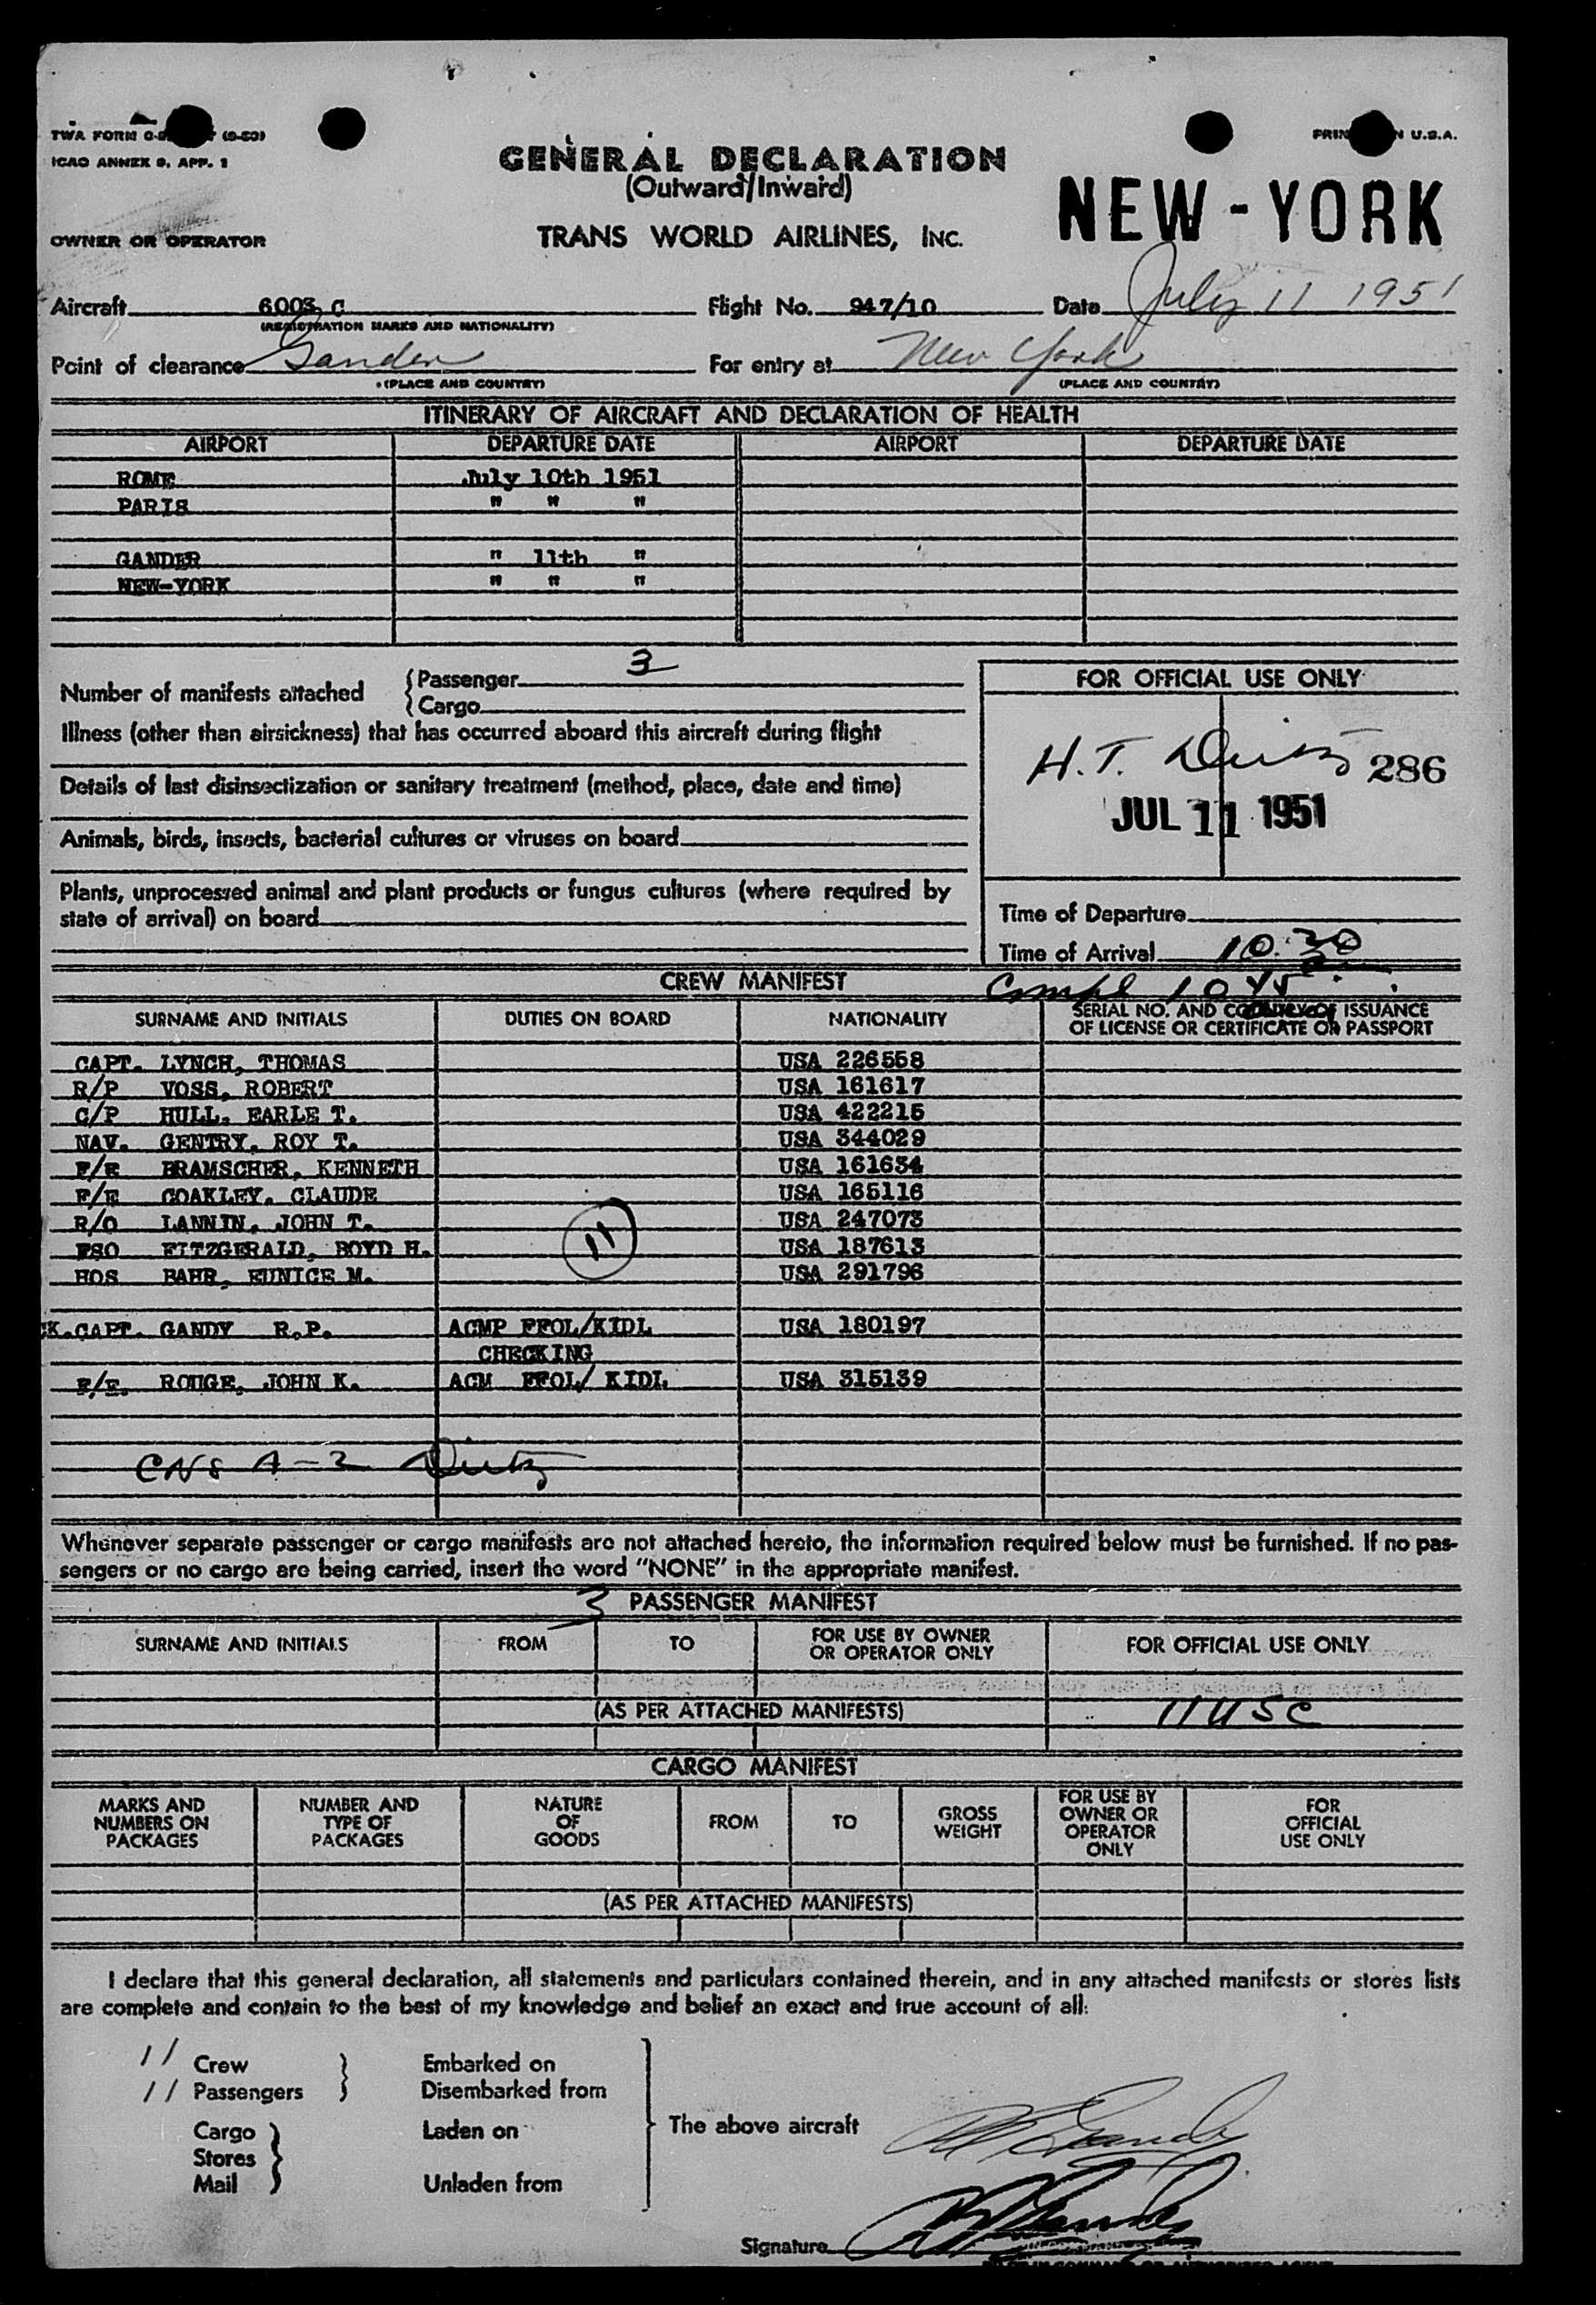 TWA FORM (9-50)
PRIN N U.S.A.
ICAO ANNEX 9, APP. 1
GENERAL DECLARATION
(Outward/Inward)
NEW-YORK
OWNER OR OPERATOR
TRANS WORLD AIRLINES, INC.
Aircraft 6003 C Flight No. 947/10 Date July 11 1951
(REGISTRATION MARKS AND NATIONALITY)
Point of clearance Gander For entry at New York
(PLACE AND COUNTRY) (PLACE AND COUNTRY)
ITINERARY OF AIRCRAFT AND DECLARATION OF HEALTH
AIRPORT DEPARTURE DATE AIRPORT DEPARTURE DATE
ROME July 10th 1951
PARIS " " "
GANDER " 11th "
NEW-YORK " " "
Number of manifests attached
Passenger 3
Cargo
Illness (other than airsickness) that has occurred aboard this aircraft during flight
Details of last disinsectization or sanitary treatment (method, place, date and time)
Animals, birds, insects, bacterial cultures or viruses on board
Plants, unprocessed animal and plant products or fungus cultures (where required by
state of arrival) on board
FOR OFFICIAL USE ONLY
H.T. 286
JUL 11 1951
Time of Departure
Time of Arrival 10:30
Compl 1045
CREW MANIFEST
SURNAME AND INITIALS DUTIES ON BOARD NATIONALITY SERIAL NO. AND COUNTRY OF ISSUANCE
OF LICENSE OR CERTIFICATE OR PASSPORT
CAPT. LYNCH, THOMAS USA 226558
R/P VOSS, ROBERT USA 161617
C/P HULL, EARLE T. USA 422215
NAV. GENTRY, ROY T. USA 344029
F/E BRAMSCHER, KENNETH USA 161634
F/E COAKLEY, CLAUDE USA 165116
R/O LANNIN, JOHN T. USA 247073
FSO FITZGERALD, BOYD H. 11 USA 187613
HOS BAHR, EUNICE M. USA 291796
CK.CAPT. GANDY R.P. ACMP FFOL/KIDL USA 180197
CHECKING
F/E. ROUGE, JOHN K. ACM FFOL/ KIDL USA 315139
Whenever separate passenger or cargo manifests are not attached hereto, the information required below must be furnished. If no pas-
sengers or no cargo are being carried, insert the word "NONE" in the appropriate manifest.
3 PASSENGER MANIFEST
SURNAME AND INITIALS FROM TO FOR USE BY OWNER
OR OPERATOR ONLY FOR OFFICIAL USE ONLY
(AS PER ATTACHED MANIFESTS) 11 USC
CARGO MANIFEST
MARKS AND
NUMBERS ON
PACKAGES
NUMBER AND
TYPE OF
PACKAGES
NATURE
OF
GOODS
FROM
TO
GROSS
WEIGHT
FOR USE BY
OWNER OR
OPERATOR
ONLY
FOR
OFFICIAL
USE ONLY
(AS PER ATTACHED MANIFESTS)
I declare that this general declaration, all statements and particulars contained therein, and in any attached manifests or stores lists
are complete and contain to the best of my knowledge and belief an exact and true account of all:
11 Crew Embarked on
11 Passengers Disembarked from
Cargo Laden on The above aircraft
Stores
Mail Unladen from
Signature